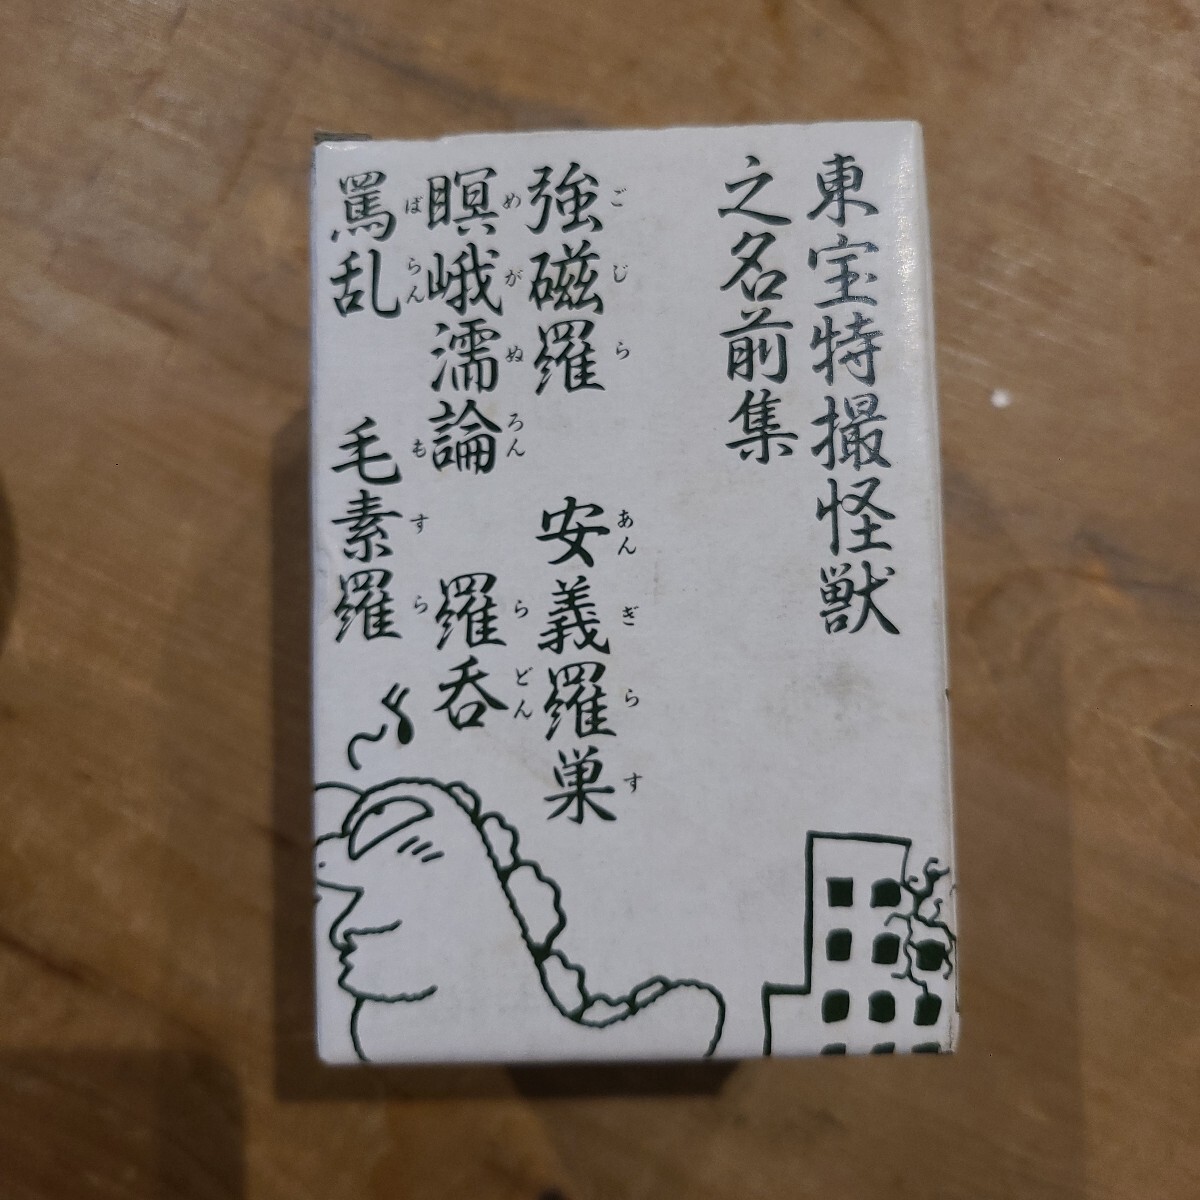 東宝特撮怪獣
之名前集
強磁羅 安義羅巣
ごじら あんぎらす
瞑峨濡論 羅呑
めがぬろん らどん
罵乱 毛素羅
ばらん もすら